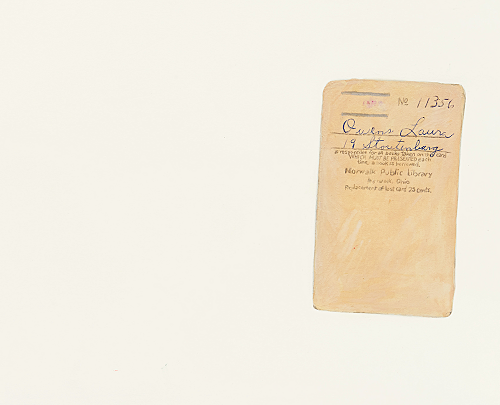 No 11356
Owens Laura
19 Stoutenburg
is responsible for all books taken on this card
WHICH MUST BE PRESENTED each
time a book is borrowed.
Norwalk Public Library
Norwalk, Ohio
Replacement of lost card 25 cents.